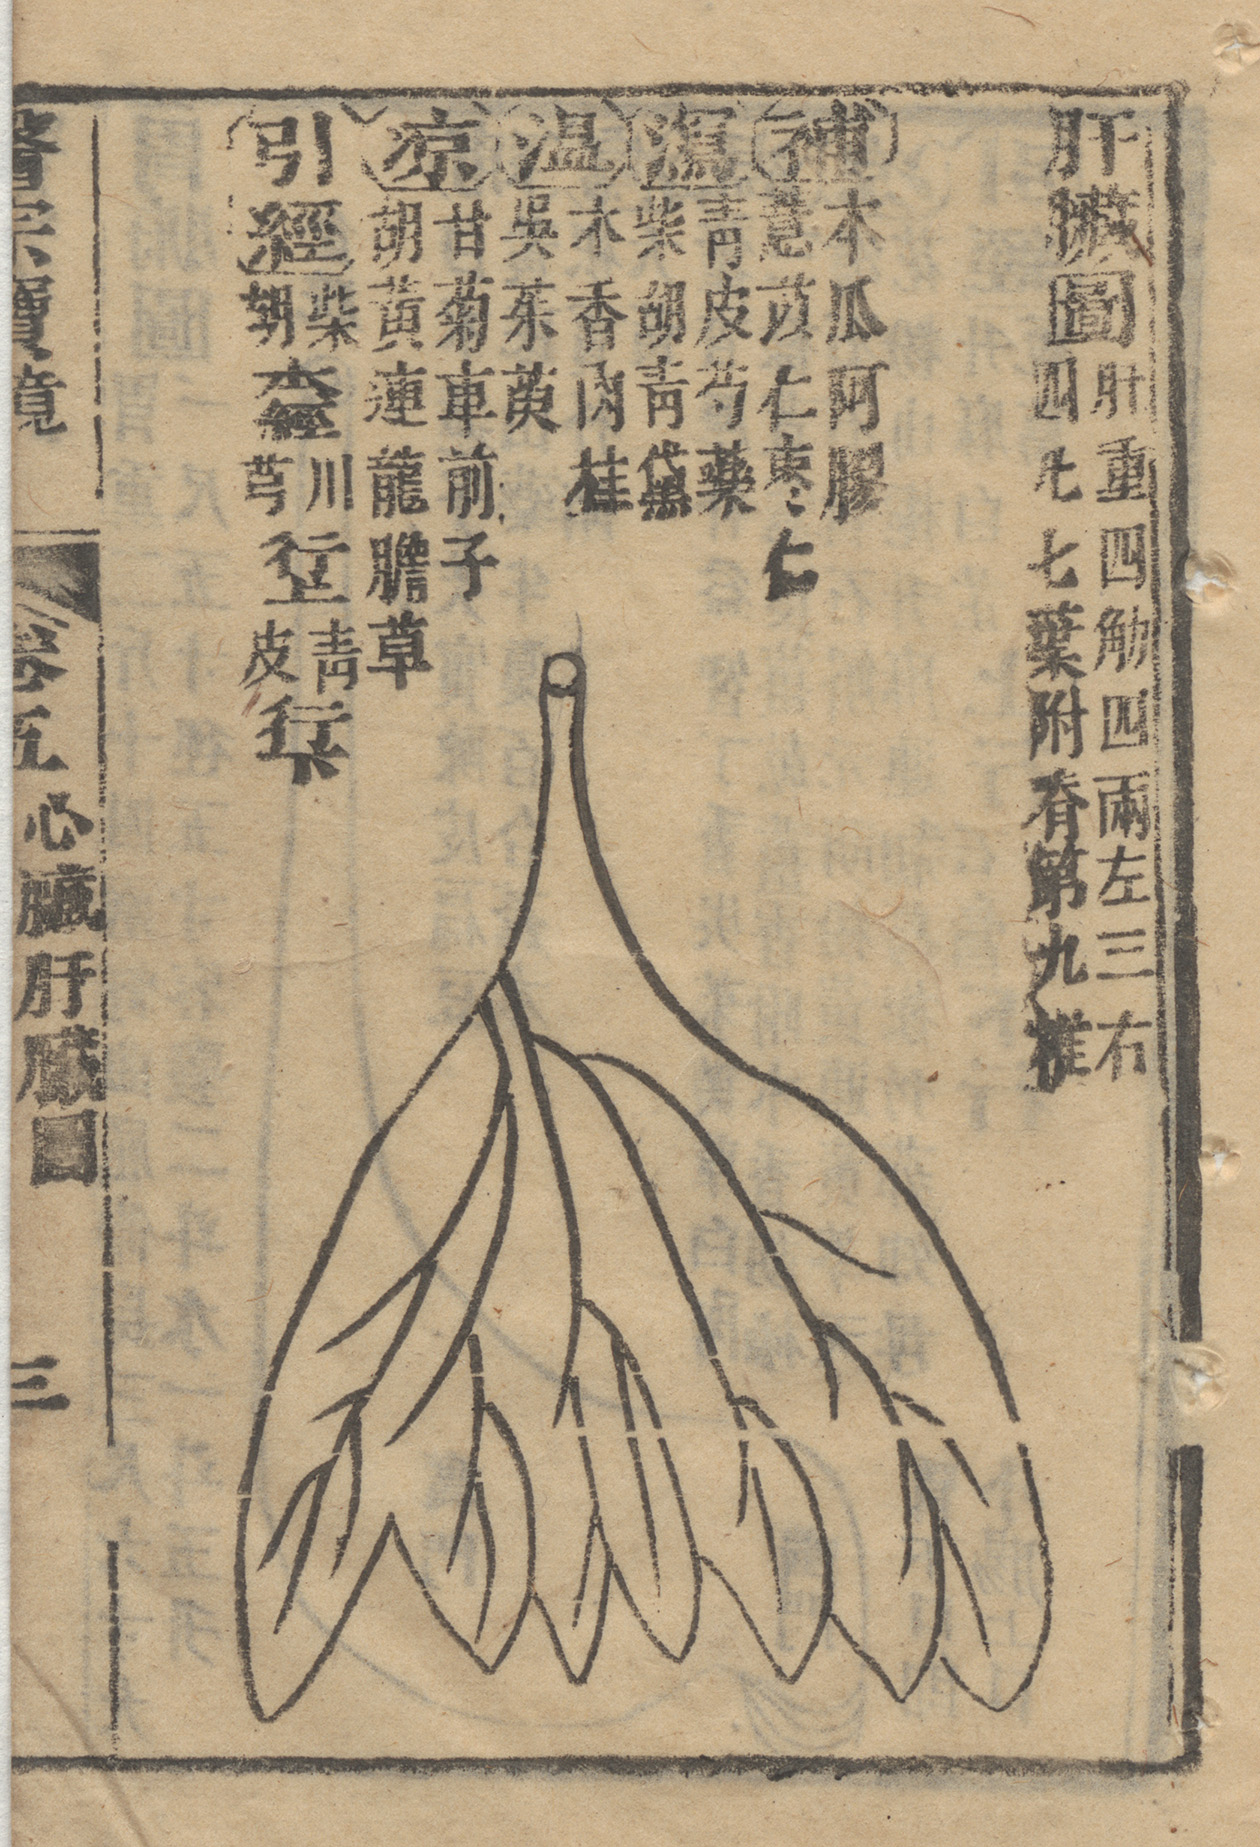 肝臟圖
肝重四觔四兩左三右
四凡七葉附脊第九椎
補
木瓜阿膠
薏苡仁棗仁
瀉
青皮芍藥
柴胡青黛
温
木香肉桂
吳茱萸
凉
甘菊車前子
胡黃連龍膽草
引經
柴胡本經川芎行上青皮行下
醫宗寶鏡
卷五
心臟肝臟圖
三